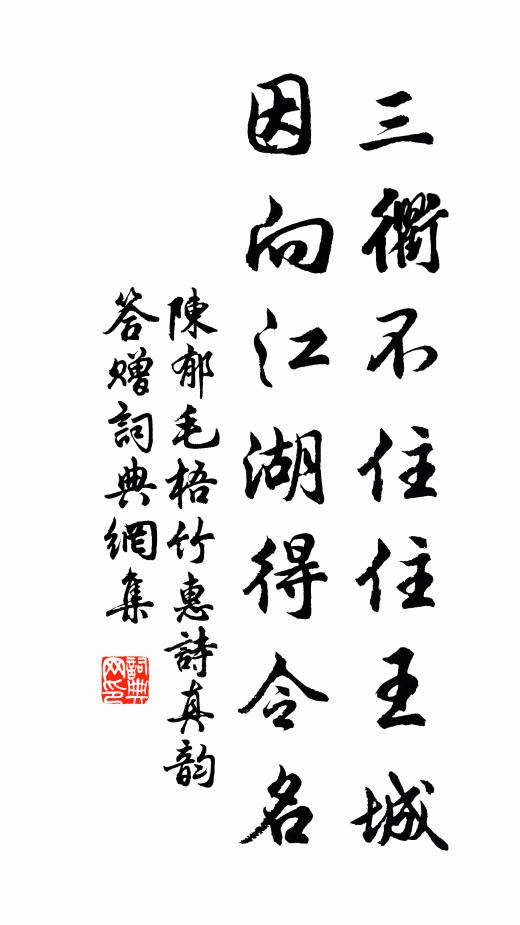 三衢不住住王城
因向江湖得令名
陳郁毛梧竹惠詩真韵
答赠詞典網集
詞典网印